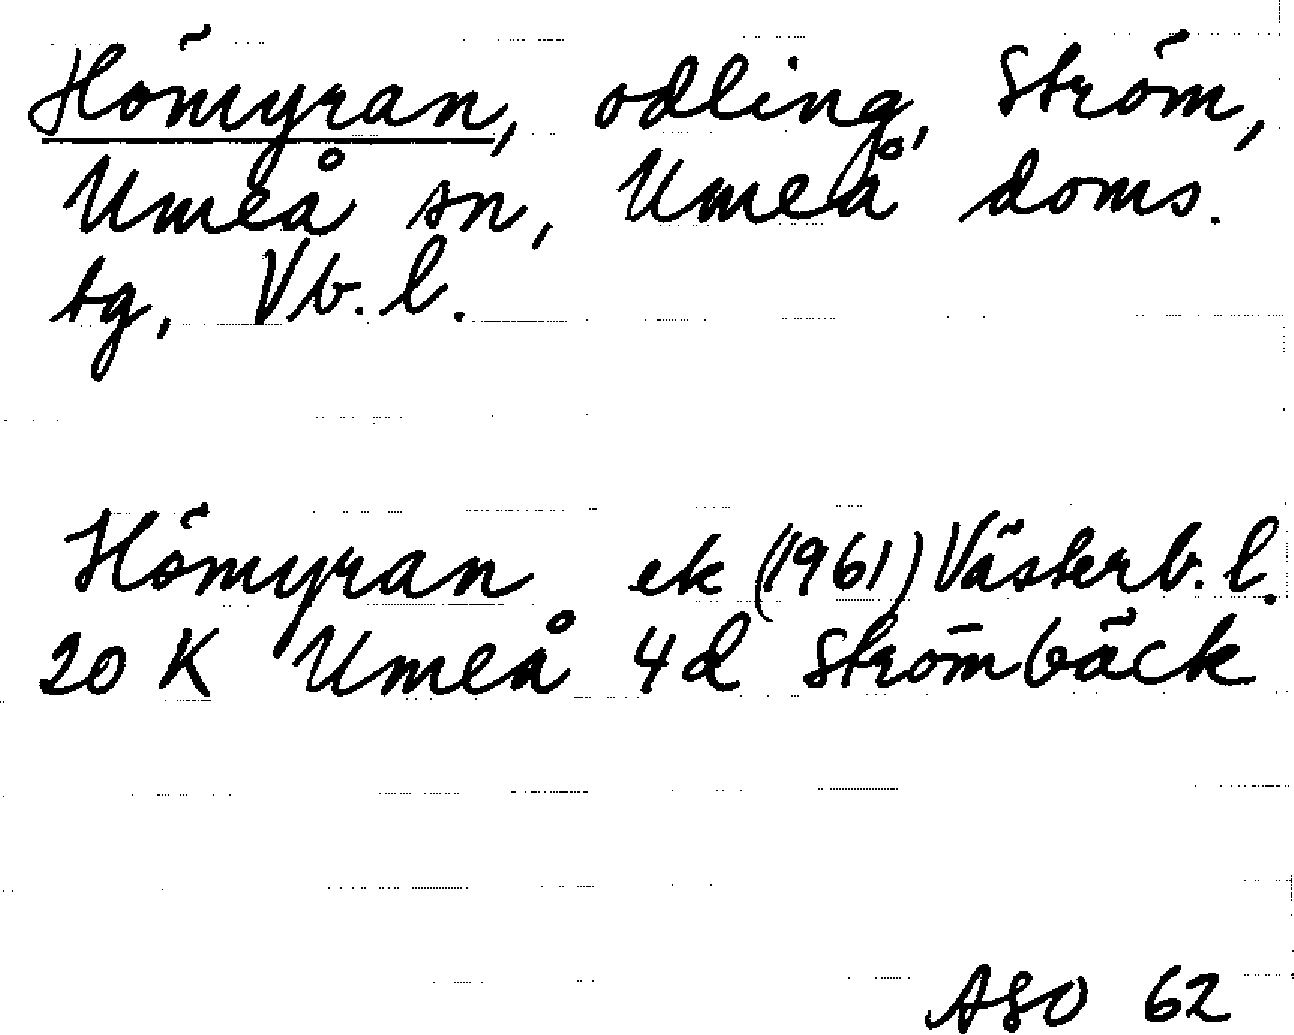 Hömyran, odling, Ström,
Umeå sn, Umeå doms.
tg, Vb. l.
Hömyran ek (1961) Västerb. l.
20 K Umeå 4d Strömbäck
ASO 62